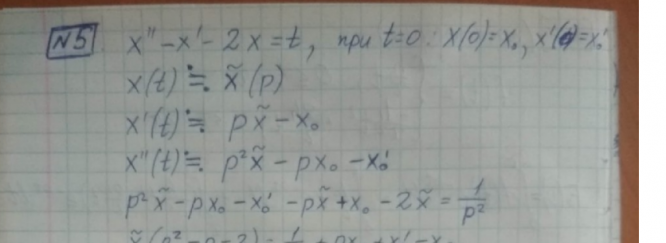 №5 x'' - x' - 2x = t, при t=0: x(0)=x₀, x'(0)=x₀'
x(t) ≓ x̃(p)
x'(t) ≓ px̃ - x₀
x''(t) ≓ p²x̃ - px₀ - x₀'
p²x̃ - px₀ - x₀' - px̃ + x₀ - 2x̃ = 1/p²